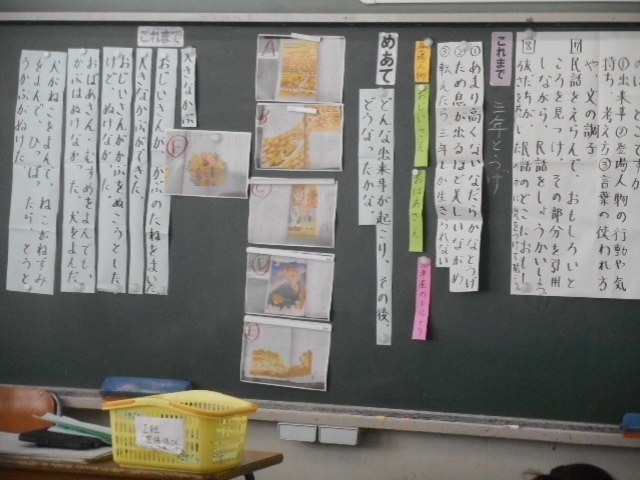 ①出来事②登場人物の行動や気
持ち、考え方③言葉の使われ方
や文の調子
7 民話をえらんで、おもしろいと
ころを見つけ、その部分を引用
しながら、民話をしょうかいしよう。
8
これまで
三年とうげ
①あまり高くない、なだらかなとうげ
②ため息が出るほど美しいながめ
③転んだら三年しか生きられない
登場人物
おじいさん
おばあさん
めあて
どんな出来事が起こり、その後、
どうなったかな。
A
B
C
D
E
F
これまで
大きなかぶ
おじいさんが、かぶのたねをまいた
大きなかぶができた。
おじいさんがかぶをぬこうとした
けど、ぬけなかった。
おばあさん、むすめをよんでも、
かぶはぬけなかった。犬をよんだ。
犬がねこをよんで、ねこがねずみ
をよんで、ひっぱったら、とうとう
かぶがぬけた。